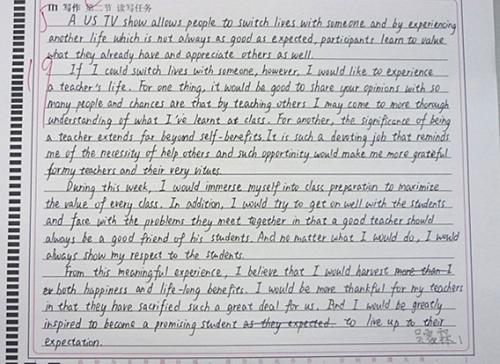 写作 第二节 读写任务
A US TV show allows people to switch lives with someone and by experiencing
another life which is not always as good as expected, participants learn to value
what they already have and appreciate others as well.
If I could switch lives with someone, however, I would like to experience
a teacher's life. For one thing, it would be good to share your opinions with so
many people and chances are that by teaching others I may come to more thorough
understanding of what I've learnt at class. For another, the significance of being
a teacher extends far beyond self-benefits. It is such a devoting job that reminds
me of the necessity of help others and such opportinity would make me more grateful
for my teachers and their very vitues.
During this week, I would immerse myself into class preparation to maximize
the value of every class. In addition, I would try to get on well with the students
and face with the problems they meet together in that a good teacher should
always be a good friend of his students. And no matter what I would do, I would
always show my respect to the students.
From this meaningful experience, I believe that I would harvest more than I
both happiness and life-long benefits. I would be more thankful for my teachers
in that they have sacrificed such a great deal for us. And I would be greatly
inspired to become a promising student as they expected to live up to their
expectation.